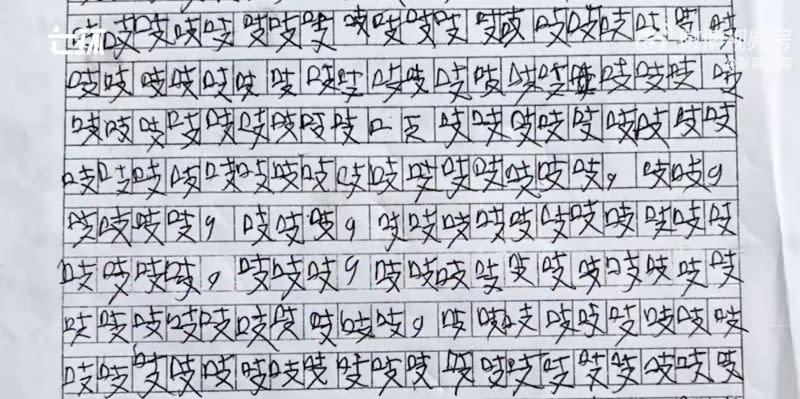 七环
吱吱吱吱吱吱吱吱吱吱吱吱吱吱吱吱吱吱吱吱
吱吱吱吱吱吱吱吱吱吱吱吱吱吱吱吱吱吱吱吱
吱吱吱吱吱吱吱吱吱口吱吱吱吱吱吱吱吱吱
吱吱吱吱吱吱吱吱吱吱吱吱吱吱吱吱，吱吱，
吱吱吱吱，吱吱吱，吱吱吱吱吱吱吱吱吱吱吱
吱吱吱吱，吱吱吱，吱吱吱吱吱吱吱吱吱吱吱
吱吱吱吱吱吱吱吱吱吱，吱吱吱吱吱吱吱吱吱
吱吱吱吱吱吱吱吱吱吱吱吱吱吱吱吱吱吱吱吱